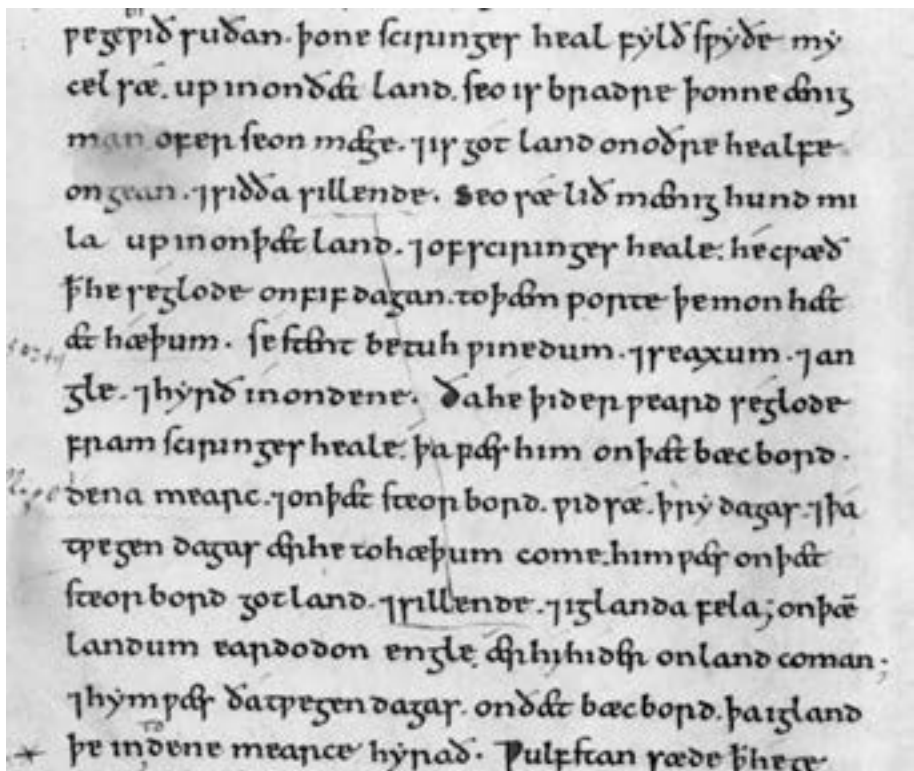 ƿege ƿið suðan. þone sciringes heal fylð sƿyðe my
cel sæ. up inon ðæt land. seo is bradre þonne ænig
man ofer seon mæge. ⁊ is gotland on oðre healfe
ongean. ⁊ siðða sillende. seo sæ lið mænig hund mi
la up inon þæt land. ⁊ of sciringes heale. he cƿæð
ꝥ he seglode on fif dagan. to þæm porte þe mon hæt
æt hæþum. se stent betuh ƿinedum. ⁊ seaxum. ⁊ an
gle. ⁊ hyrð inon dene. Ða he þiderƿeard seglode
fram sciringes heale. þa ƿæs him on þæt bæcbord.
dena mearc. ⁊ on þæt steorbord. ƿid sæ. þry dagas. ⁊ þa
tƿegen dagas ær he to hæþum come. him ƿæs on þæt
steorbord gotland. ⁊ sillende. ⁊ iglanda fela; on þæ̅
landum eardodon engle. ær hi hider on land coman.
⁊ hym ƿæs ða tƿegen dagas. on ðæt bæcbord. þa igland
þe in dene mearce hyrað. Ƿulfstan sæde ꝥ he ge